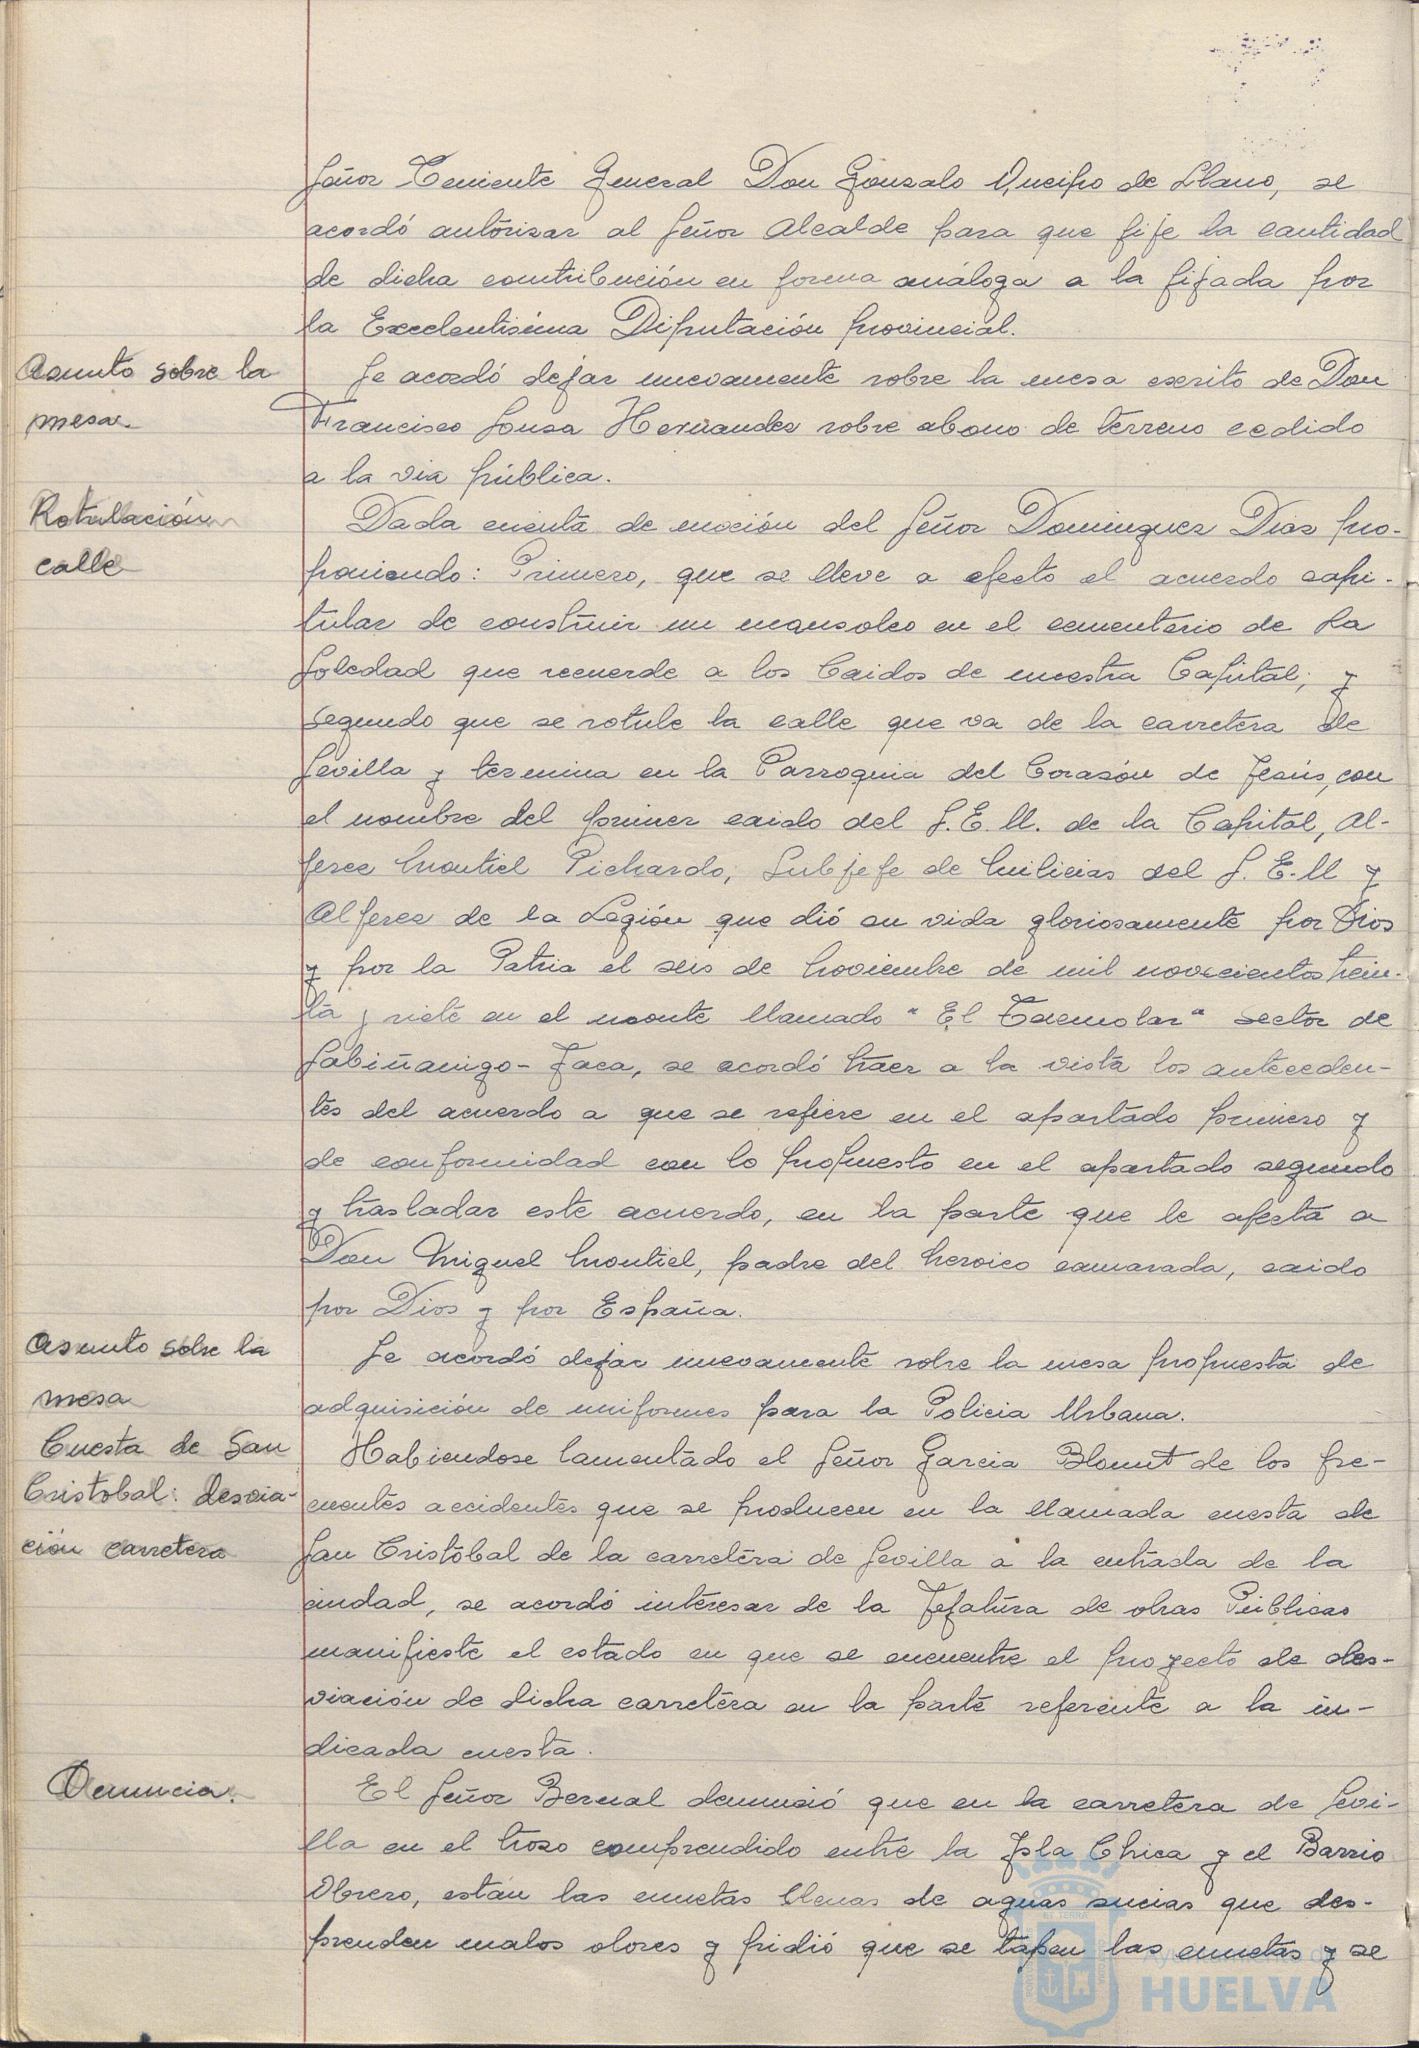 Señor Teniente General Don Gonzalo Queipo de Llano, se
acordó autorizar al Señor Alcalde para que fije la cantidad
de dicha contribución en forma análoga a la fijada por
la Excelentísima Diputación provincial.
Asunto sobre la
mesa.
Se acordó dejar nuevamente sobre la mesa escrito de Don
Francisco Sousa Hernandez sobre abono de terreno cedido
a la via pública.
Rotulación
calle
Dada cuenta de moción del Señor Dominguez Diaz pro-
poniendo: Primero, que se lleve a efecto el acuerdo capi-
tular de construir un mausoleo en el cementerio de La
Soledad que recuerde a los Caidos de nuestra Capital; y
segundo que se rotule la calle que va de la carretera de
Sevilla y termina en la Parroquia del Corazón de Jesús, con
el nombre del primer caido del S.E.U. de la Capital, Al-
ferez Montiel Pichardo, Subjefe de Milicias del S.E.U y
Alferez de la Legión que dió su vida gloriosamente por Dios
y por la Patria el seis de Noviembre de mil novecientos trein-
ta y siete en el monte llamado "El Tremolar" sector de
Sabiñanigo-Jaca, se acordó traer a la vista los anteceden-
tes del acuerdo a que se refiere en el apartado primero y
de conformidad con lo propuesto en el apartado segundo
y trasladar este acuerdo, en la parte que le afecta a
Don Miguel Montiel, padre del heroico camarada, caido
por Dios y por España.
Asunto sobre la
mesa
Se acordó dejar nuevamente sobre la mesa propuesta de
adquisición de uniformes para la Policia Urbana.
Cuesta de San
Cristobal: desvia-
ción carretera
Habiendose lamentado el Señor Garcia Blount de los fre-
cuentes accidentes que se producen en la llamada cuesta de
San Cristóbal de la carretera de Sevilla a la entrada de la
ciudad, se acordó interesar de la Jefatura de obras Públicas
manifieste el estado en que se encuentre el proyecto de des-
viación de dicha carretera en la parte referente a la in-
dicada cuesta.
Denuncia.
El Señor Bernal denunció que en la carretera de Sevi-
lla en el trozo comprendido entre la Isla Chica y el Barrio
Obrero, están las cunetas llenas de aguas sucias que des-
prenden malos olores y pidió que se tapen las cunetas y se
Ayuntamiento de
HUELVA